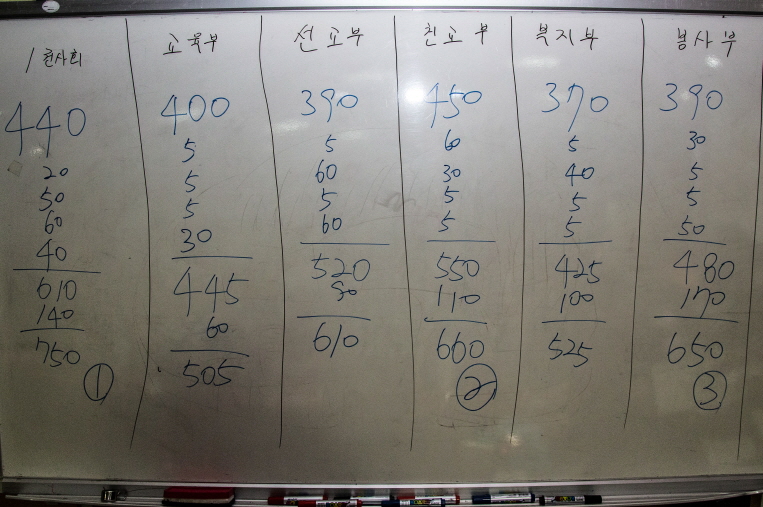 권사회 교육부 선교부 친교부 복지부 봉사부
440 400 390 450 370 390
20 5 5 60 5 30
50 5 60 30 40 5
60 5 5 5 5 5
40 30 60 5 5 50
610 445 520 550 425 480
140 60 90 110 100 170
750 505 610 660 525 650
① ② ③